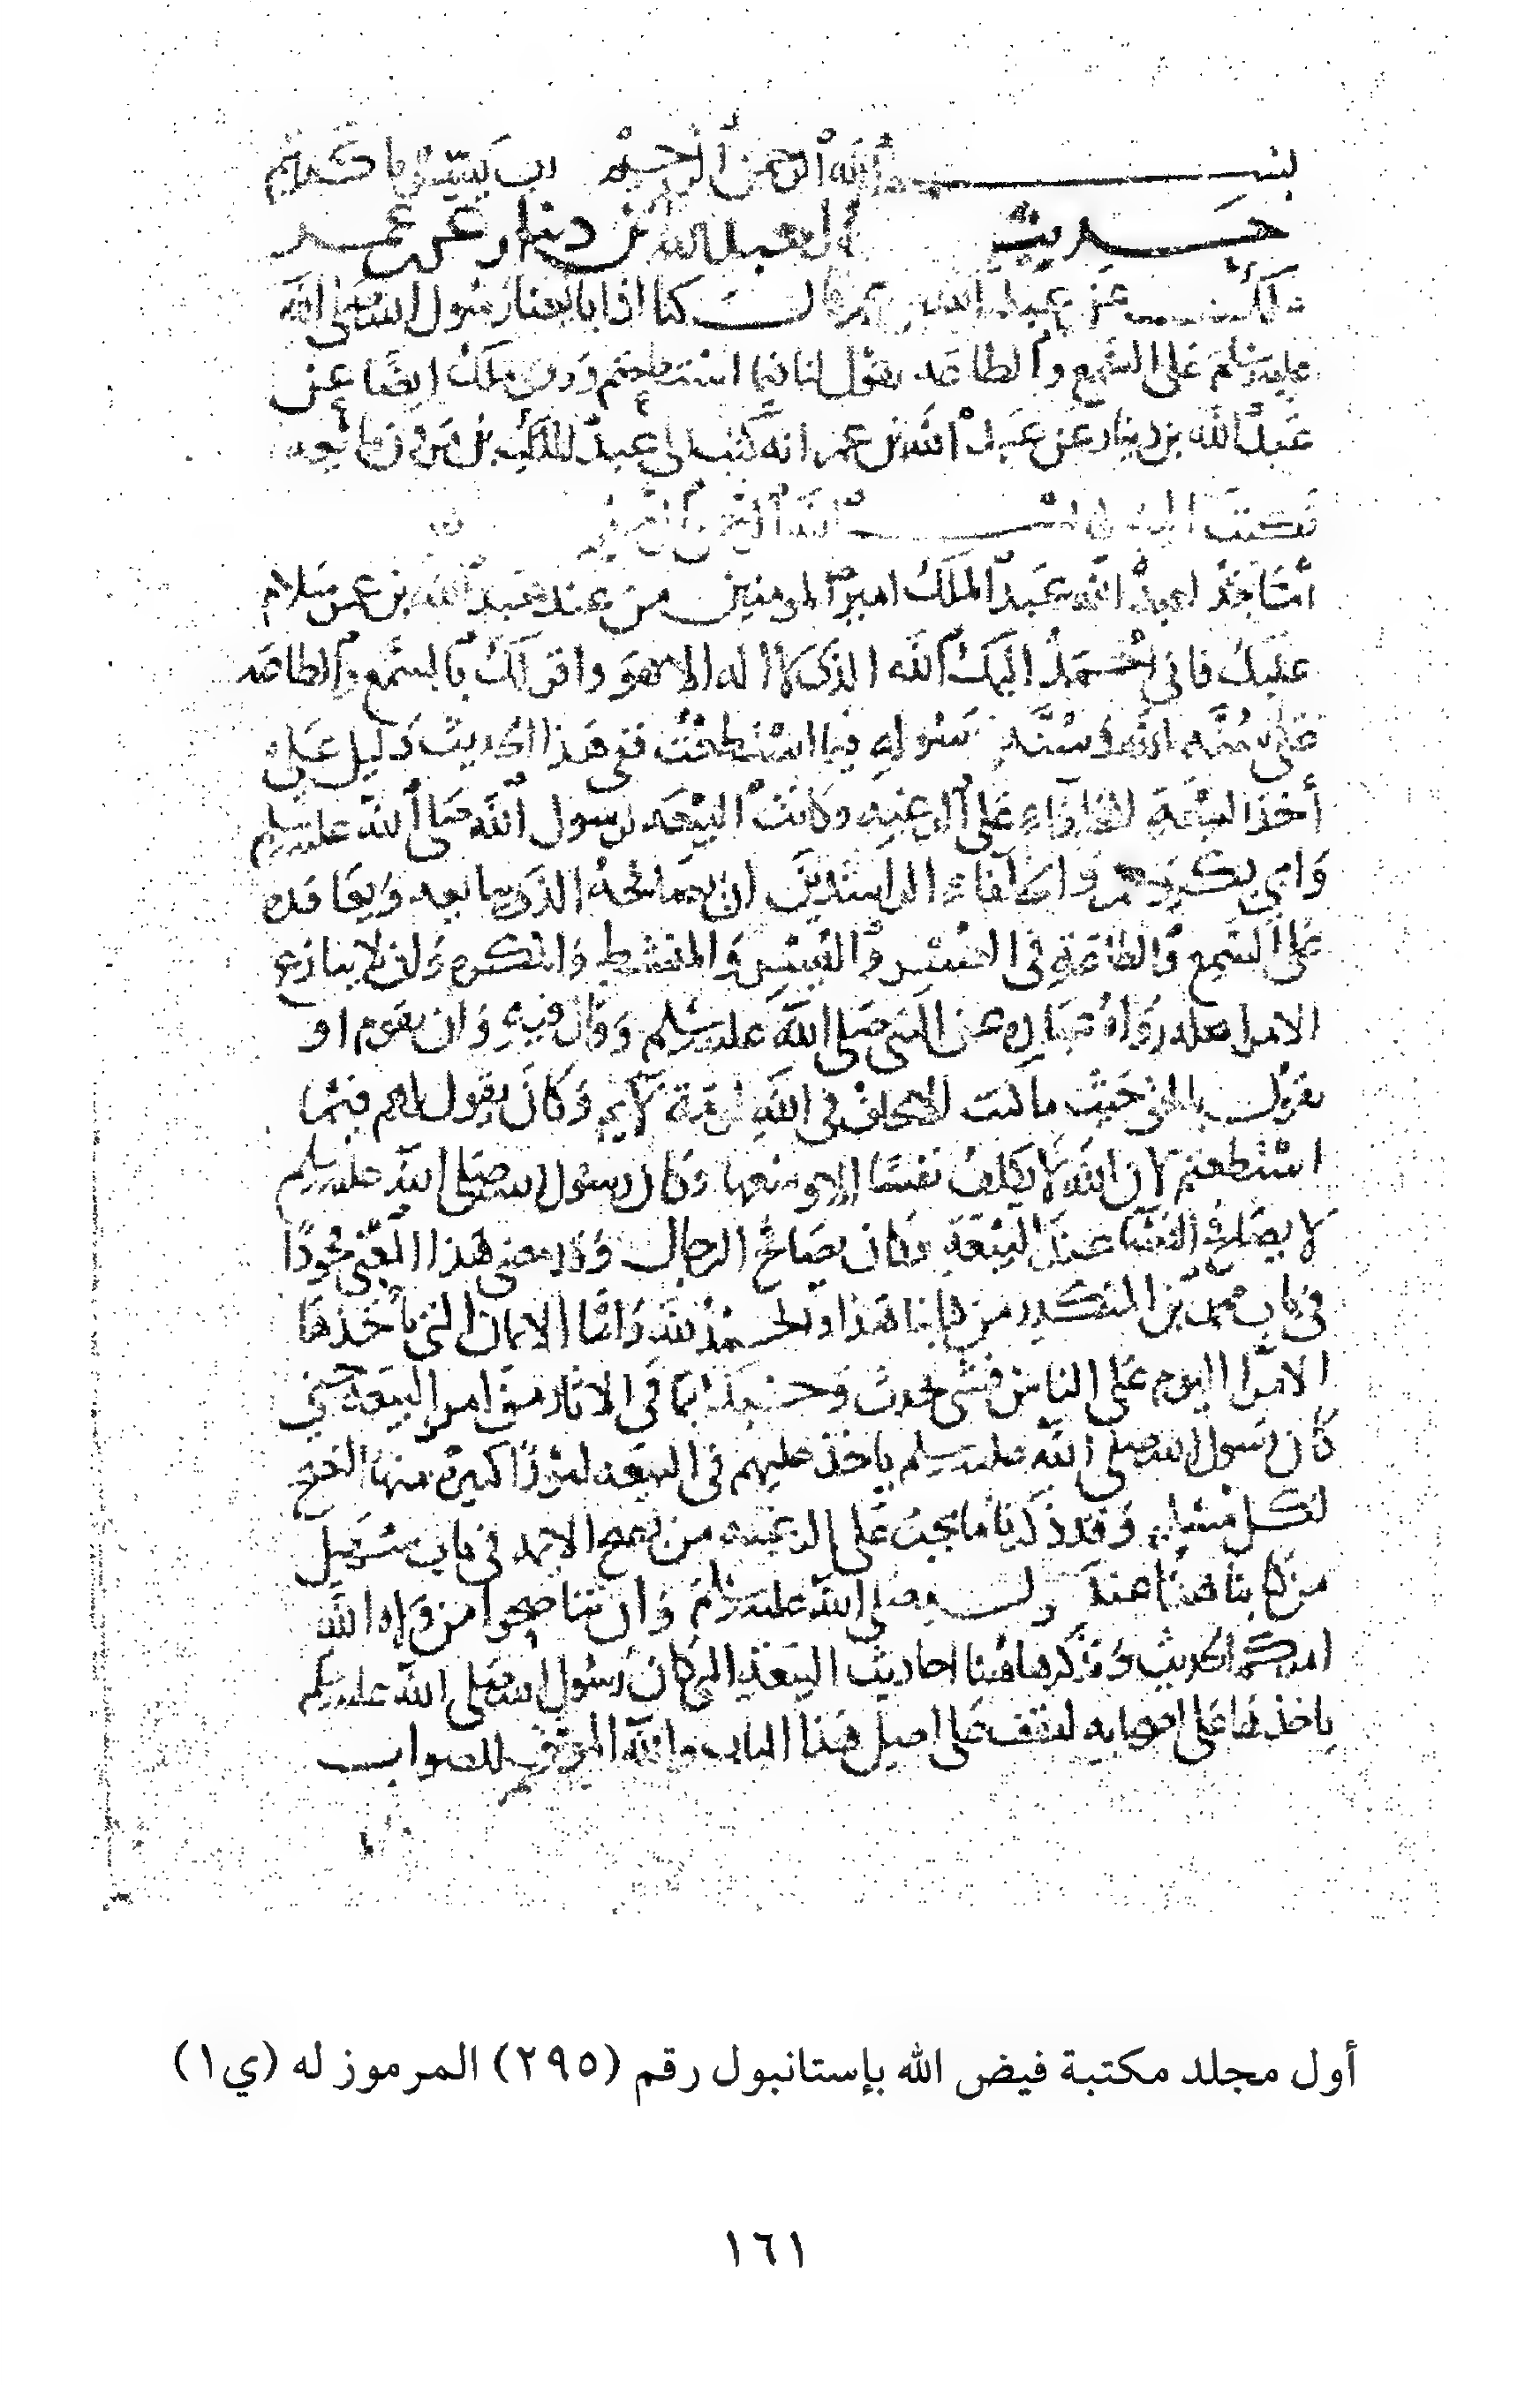 بسم الله الرحمن الرحيم رب يسر يا كريم
حديث لعبد الله بن دينار عن عمر
ملك عن عبد الله بن عمر قال كنا اذا بايعنا رسول الله صلى الله
عليه وسلم على السمع والطاعه يقول لنا فيما استطعتم وروى ملك ايضا عن
عبد الله بن دينار عن عبد الله بن عمر انه كتب الى عبد الملك بن مرون يبايعه
فكتب اليه بسم الله الرحمن الرحيم
أما بعد لعبد الله عبد الملك امير المومنين من عند عبد الله بن عمر سلام
عليك فاني احمد اليك الله الذي لا اله الا هو واقر لك بالسمع والطاعه
على سنه الله وسنة رسوله فيما استطعت ففي هذا الحديث دليل على
أخذ البيعة للامراء على الرعيه وكانت البيعه لرسول الله صلى الله عليه وسلم
وابي بكر وعمر والخلفاء الراشدين ان يصافحه الذي يبايعه ويعاقده
على السمع والطاعة في العسر واليسر والمنشط والمكره وان لا ينازع
الامر اهله رواه عبادة عن النبي صلى الله عليه وسلم وقال فيه وان يقوم او
يقول بالحق حيث ما كنت لا نخاف في الله لومة لائم وكان يقول لهم فيما
استطعتم لان الله لا يكلف نفسا الا وسعها وكان رسول الله صلى الله عليه وسلم
لا يصافح النسا عند البيعة وكان يصافح الرجال وقد مضى هذا المعنى مجودا
في باب محمد بن المنكدر من كتابنا هذا والحمد لله واما الايمان التي ياخذها
الامرا اليوم على الناس فشي محدث وحسبك بما في الاثار من امر البيعة حتى
كان رسول الله صلى الله عليه وسلم ياخذ عليهم في البيعه امورا كثيرة منها النصح
لكل مسلم وقد ذكرنا ما يجب على الرعيه من نصح الايمه في باب سهيل
من كتابنا هذا عند قوله صلى الله عليه وسلم وان تناصحوا من ولاه الله
امركم الحديث ونذكر هاهنا احاديث البيعة التي كان رسول الله صلى الله عليه وسلم
ياخذها على اصحابه لتقف على اصل هذا الباب والله الموفق للصواب
أول مجلد مكتبة فيض الله بإستانبول رقم (٢٩٥) المرموز له (ي١)
١٦١